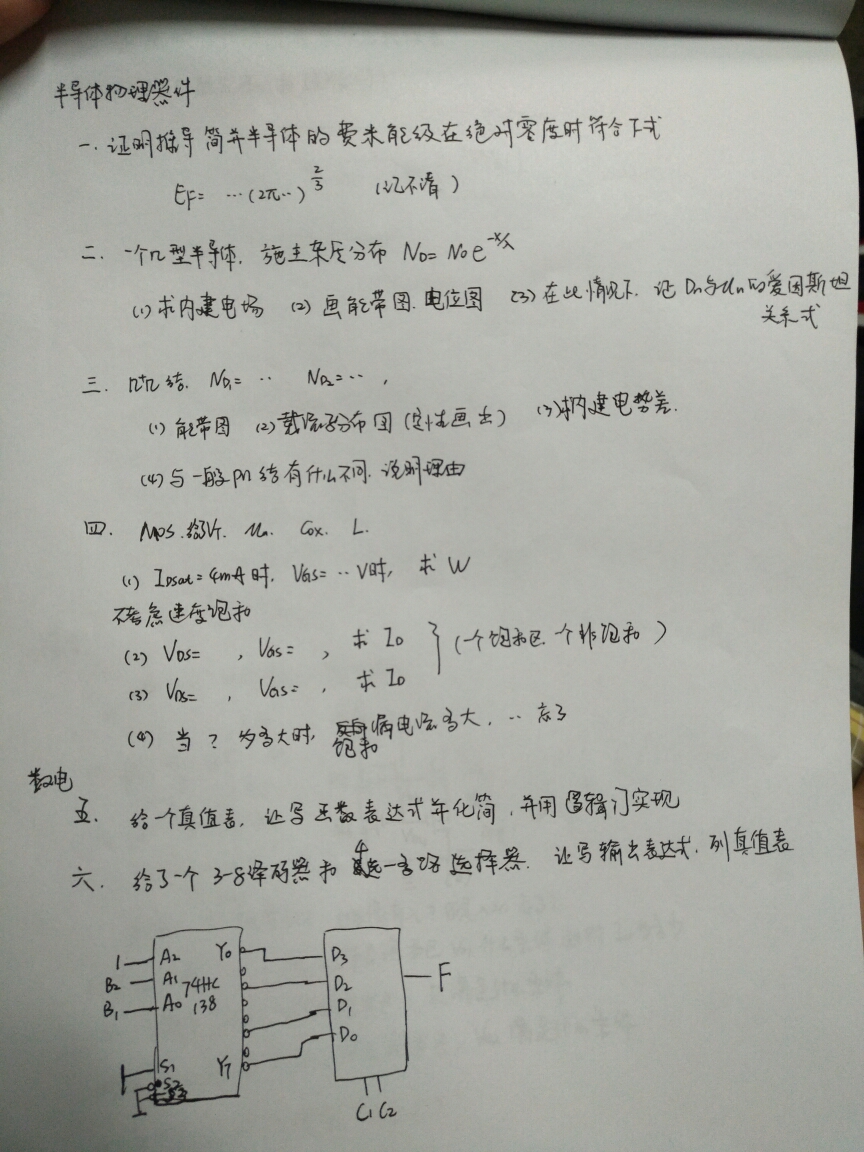 半导体物理器件
一. 证明推导简并半导体的费米能级在绝对零度时符合下式
EF= …(2π..)^{2/3} (记不清)
二. 一个n型半导体. 施主杂质分布 ND= N0 e^{-x/λ}
(1) 求内建电场 (2) 画能带图. 电位图 (3) 在此情况下. 证 Dn与μn的爱因斯坦
关系式
三. n+n 结. ND1= ‥ ND2=‥ ,
(1) 能带图 (2) 载流子分布图 (定性画出) (3) 求内建电势差.
(4) 与一般pn结有什么不同. 说明理由
四. MOS. 给了VT. μn. Cox. L.
(1) IDsat=4mA时. VGS= ‥V时, 求 W
不考虑速度饱和
(2) VDS= , VGS= , 求 ID
(3) VDS= , VGS= , 求 ID
(一个饱和区. 个非饱和)
(4) 当 ? 为多大时, 饱和漏电流多大, ‥ 忘了
数电
五. 给一个真值表, 让写函数表达式并化简, 并用逻辑门实现
六. 给了一个 3-8译码器和4选一多路选择器. 让写输出表达式, 列真值表
1 A2 Y0 D3
B2 A1 74HC D2 F
B1 A0 138 D1
D0
S1 Y7
S2
S3
C1 C2